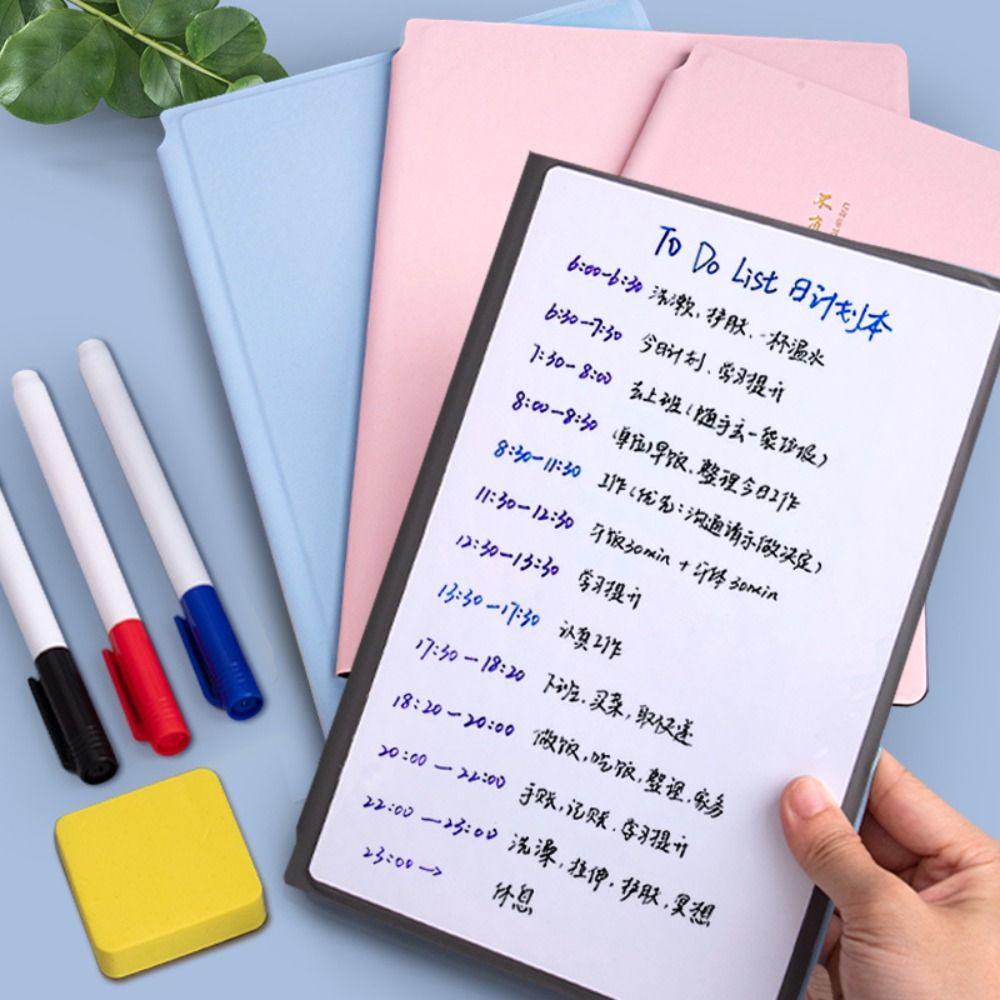 To Do List 日计划本
6:00-6:30 洗漱,护肤、一杯温水
6:30-7:30 今日计划、学习提升
7:30-8:00 去上班(随手去一袋垃圾)
8:00-8:30 (单位)早饭、整理今日工作
8:30-11:30 工作(优先:沟通请示做决定)
11:30-12:30 午饭30min + 午休30min
12:30-13:30 学习提升
13:30-17:30 认真工作
17:30-18:20 下班、买菜,取快递
18:20-20:00 做饭,吃饭,整理,家务
20:00-22:00 手账,记账、学习提升
22:00-23:00 洗澡,拉伸,护肤,冥想
23:00→ 休息
不负